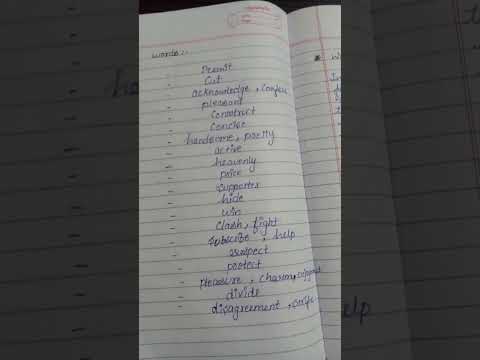 words :-
- Permit
- Cut
- acknowledge, confess
- pleasant
- Construct
- Concise
- handsome, pretty
- active
- heavenly
- price
- supporter
- hide
- win
- Clash, fight
- subscribe, help
- suspect
- protect
- pleasure, charm,
- divide
- disagreement,